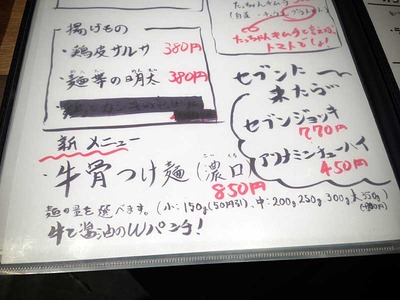 揚げもの
・鶏皮サルサ 380円
・麺等の明太 380円
たっちゃんキムチと言えば、
トマトでしょ!
セブンに
来たらづ
セブンジョッキ
770円
アリナミンチューハイ
450円
新メニュー
・牛骨つけ麺(濃口)
850円
麺の量を選べます。(小:150g(50円引)、中:200g 250g 300g 大350g)
牛と醤油のWパンチ!